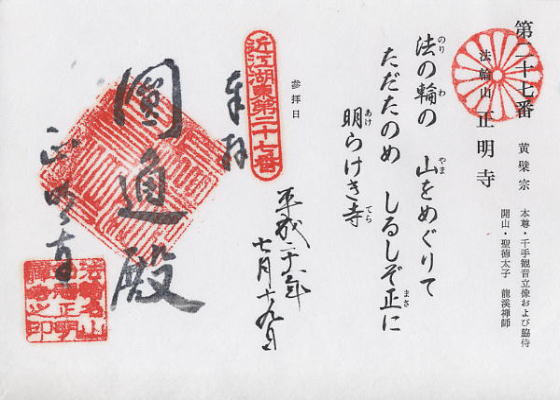 第二十七番　黄檗宗　本尊・千手観音立像および脇侍
開山・聖徳太子　龍溪禅師
法輪山　正明寺
法の輪の　山をめぐりて
のり　わ　やま
ただたのめ　しるしぞ正に
まさ
明らけき寺
あけ　てら
参拝日
平成二十一年
七月十九日
近江湖東第二十七番
奉拝
圓通殿
正明寺